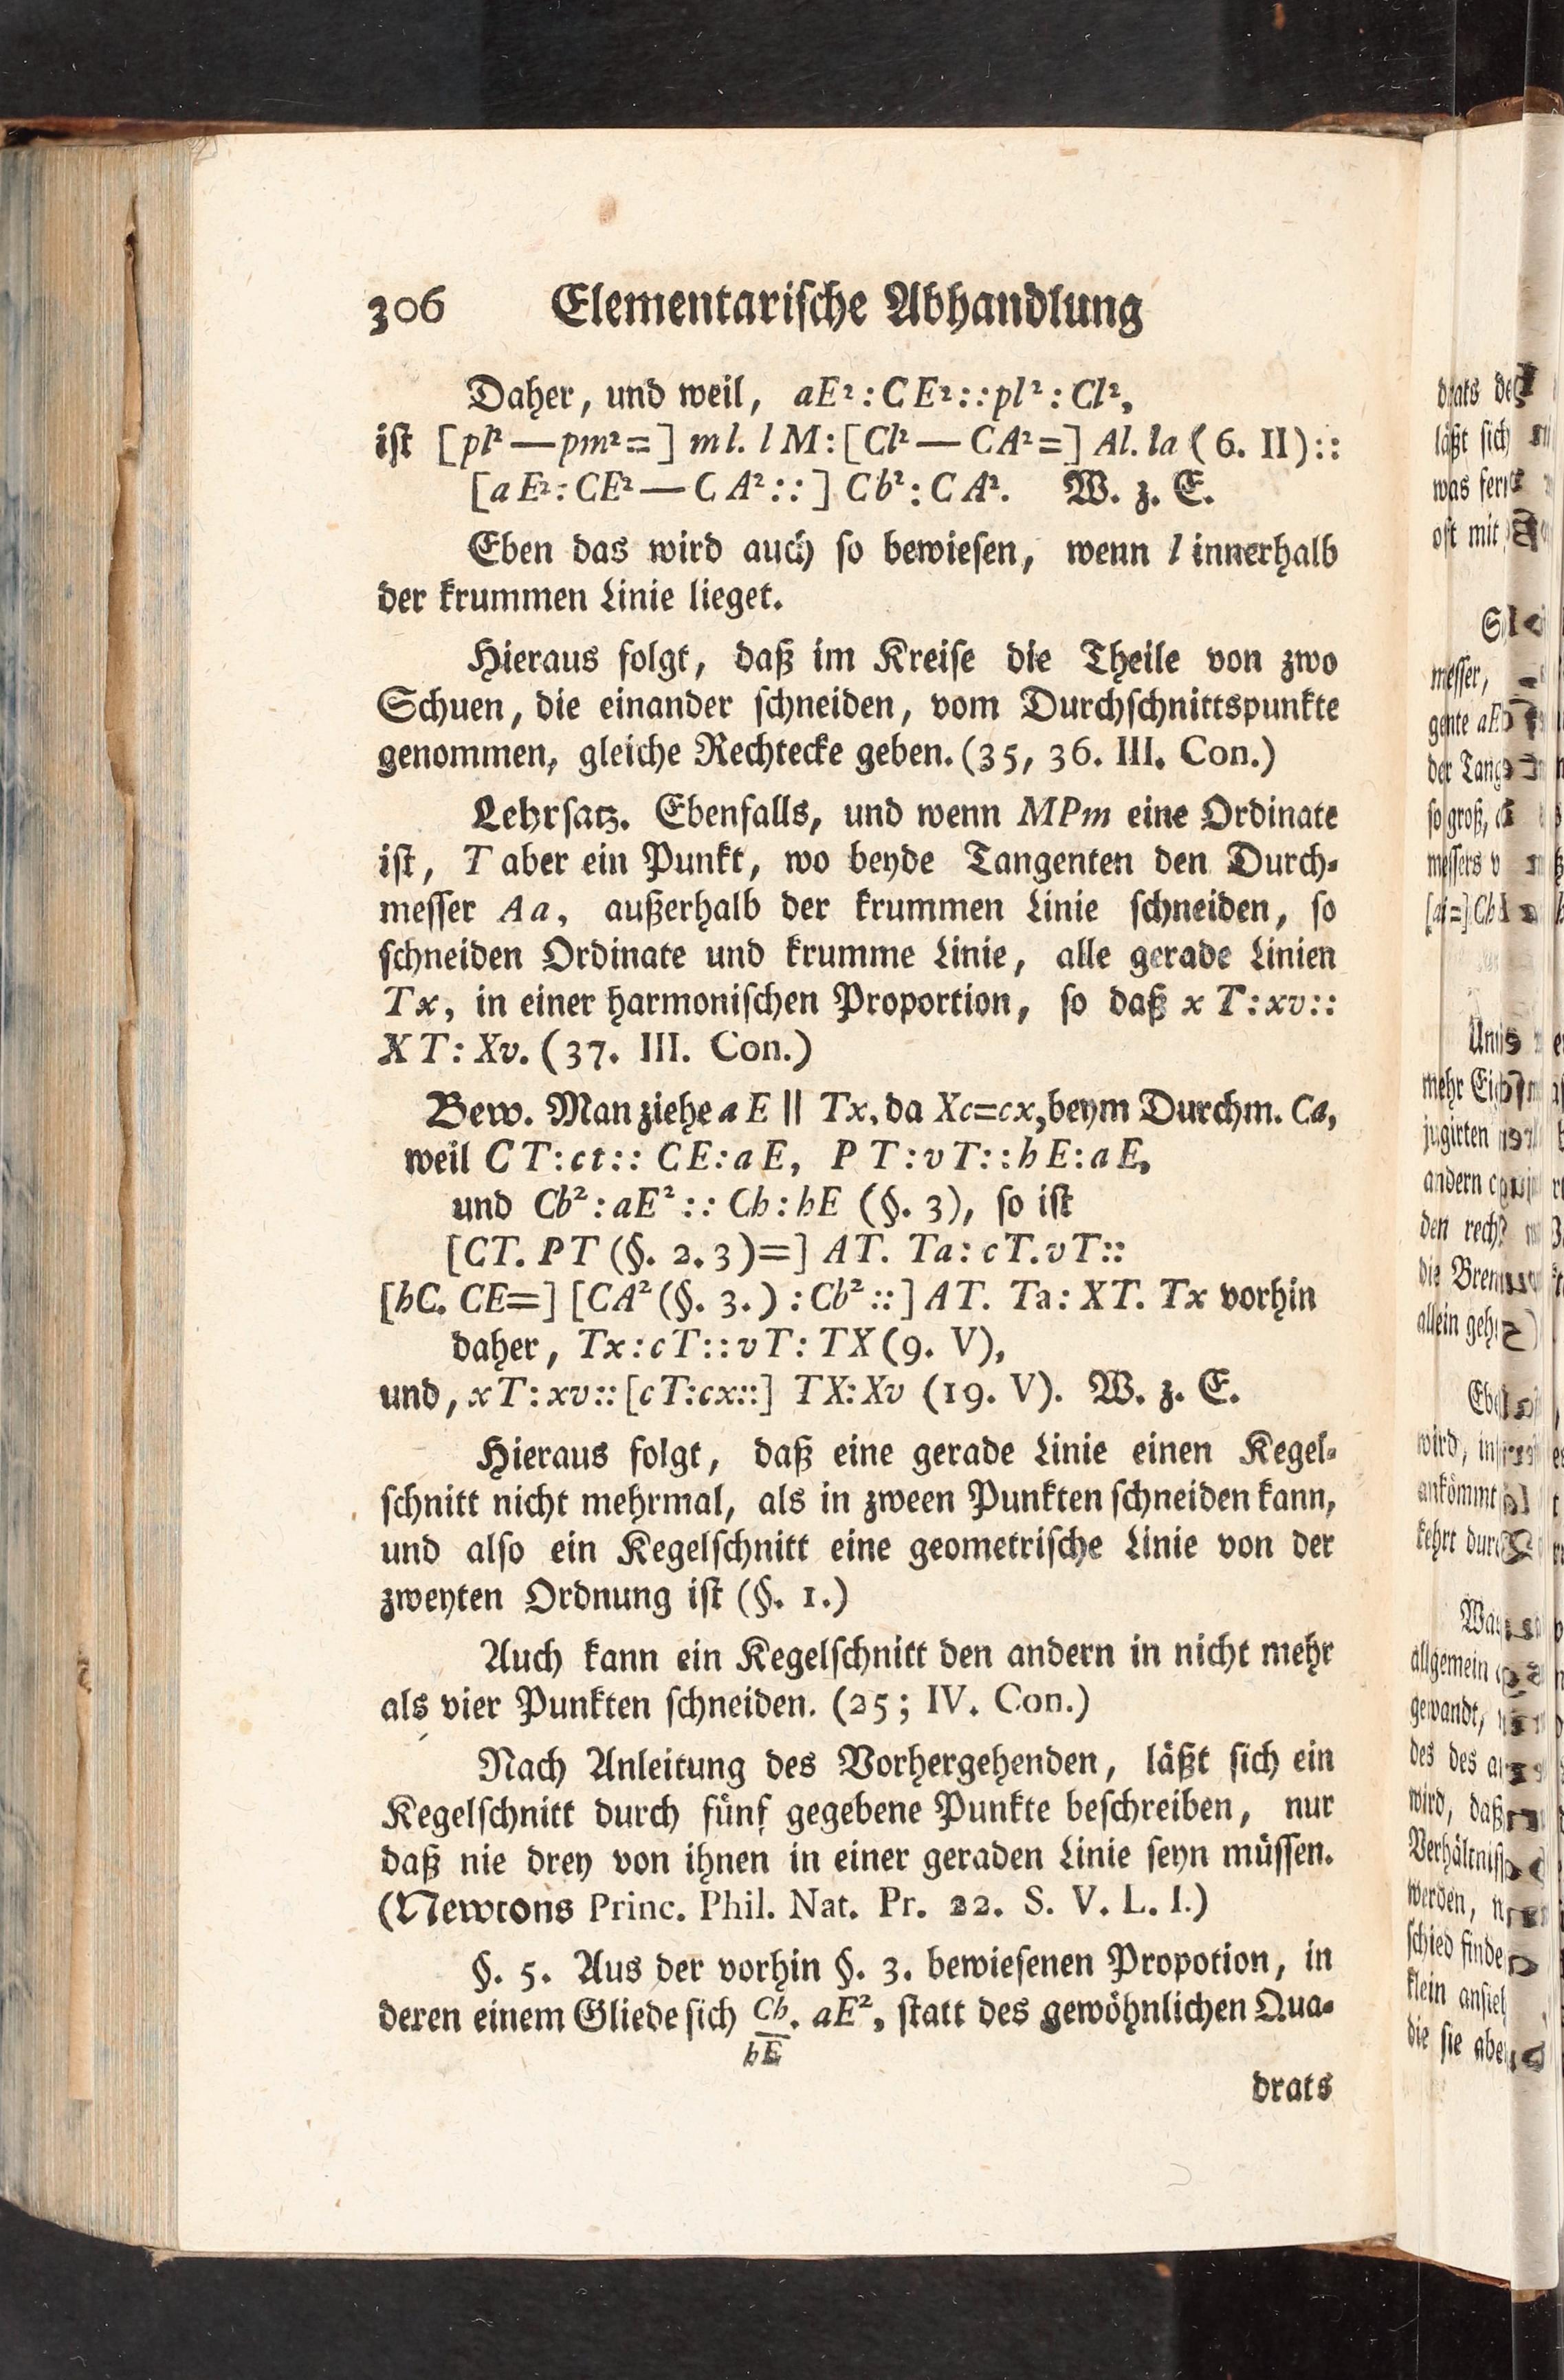 306 Elementarische Abhandlung
Daher, und weil, aE²:CE²::pl²:Cl²,
ist [pl²—pm²=] ml. lM:[Cl²—CA²=] Al. la (6. II)::
[aE²:CE²—CA²::] Cb²:CA². W. z. E.
Eben das wird auch so bewiesen, wenn l innerhalb
der krummen Linie lieget.
Hieraus folgt, daß im Kreise die Theile von zwo
Sehnen, die einander schneiden, vom Durchschnittspunkte
genommen, gleiche Rechtecke geben. (35, 36. III. Con.)
Lehrsatz. Ebenfalls, und wenn MPm eine Ordinate
ist, T aber ein Punkt, wo beyde Tangenten den Durch-
messer Aa, außerhalb der krummen Linie schneiden, so
schneiden Ordinate und krumme Linie, alle gerade Linien
Tx, in einer harmonischen Proportion, so daß xT:xv::
XT:Xv. (37. III. Con.)
Bew. Man ziehe aE || Tx, da Xc=cx, beym Durchm. Ca,
weil CT:ct:: CE:aE, PT:vT::hE:aE,
und Cb²:aE²:: Ch:hE (§. 3), so ist
[CT. PT (§. 2. 3)=] AT. Ta:cT.vT::
[hC. CE=] [CA² (§. 3.) :Cb²::] AT. Ta:XT. Tx vorhin
daher, Tx:cT::vT:TX (9. V),
und, xT:xv::[cT:cx::] TX:Xv (19. V). W. z. E.
Hieraus folgt, daß eine gerade Linie einen Kegel-
schnitt nicht mehrmal, als in zween Punkten schneiden kann,
und also ein Kegelschnitt eine geometrische Linie von der
zweyten Ordnung ist (§. 1.)
Auch kann ein Kegelschnitt den andern in nicht mehr
als vier Punkten schneiden. (25; IV. Con.)
Nach Anleitung des Vorhergehenden, läßt sich ein
Kegelschnitt durch fünf gegebene Punkte beschreiben, nur
daß nie drey von ihnen in einer geraden Linie seyn müssen.
(Newtons Princ. Phil. Nat. Pr. 22. S. V. L. I.)
§. 5. Aus der vorhin §. 3. bewiesenen Propotion, in
deren einem Gliede sich Ch. aE², statt des gewöhnlichen Qua-
hE
drats